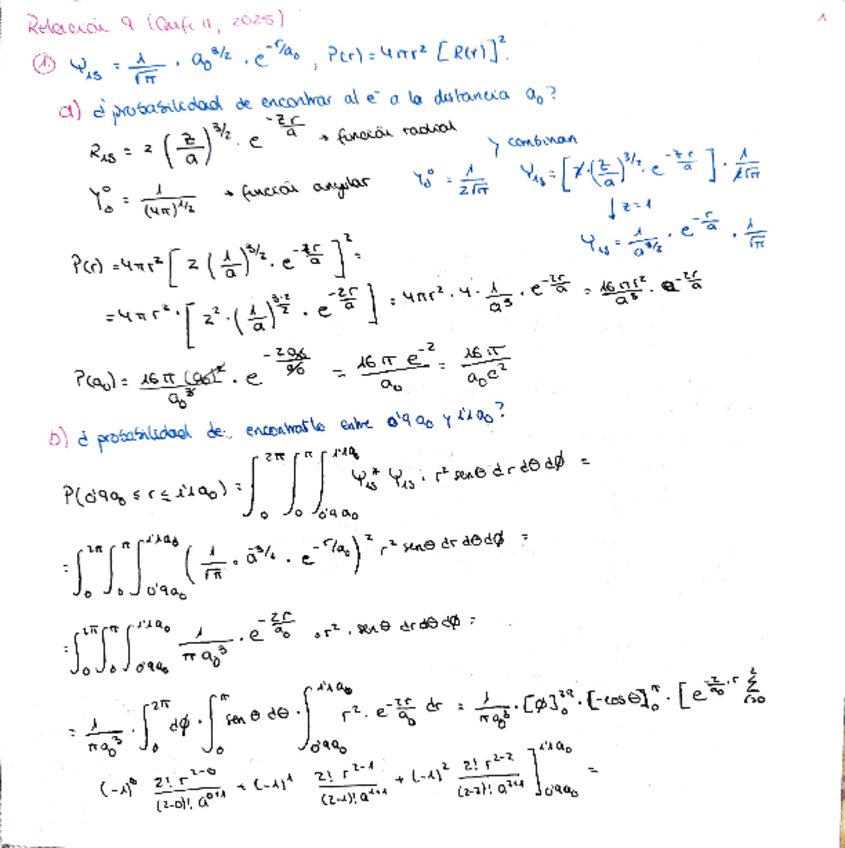 Relación 9 (Quífi II, 2025) 1
① Ψ₁ₛ = 1/√π · a₀^3/2 · e^-r/a₀, P(r) = 4πr² [R(r)]².
a) ¿probabilidad de encontrar al e⁻ a la distancia a₀?
R₁ₛ = 2 (z/a)^3/2 · e^-zr/a → función radial
Y₀⁰ = 1/(4π)^1/2 → función angular
Y₀⁰ = 1/2√π
y combinan
Ψ₁ₛ = [2·(z/a)^3/2 · e^-zr/a] · 1/2√π
↓ z=1
Ψ₁ₛ = 1/a^3/2 · e^-r/a · 1/√π
P(r) = 4πr² [2 (1/a)^3/2 · e^-zr/a]² =
= 4πr² · [2² · (1/a)^3·2/2 · e^-2r/a] = 4πr² · 4 · 1/a³ · e^-2r/a = 16πr²/a³ · e^-2r/a
P(a₀) = 16π (a₀)²/a₀³ · e^-2a₀/a₀ = 16π e^-2/a₀ = 16π/a₀e²
b) ¿probabilidad de encontrarlo entre 0'9 a₀ y 1'1 a₀?
P(0'9a₀ ≤ r ≤ 1'1a₀) = ∫₀^2π ∫₀^π ∫_0'9a₀^1'1a₀ Ψ₁ₛ* Ψ₁ₛ · r² senθ dr dθ dϕ =
= ∫₀^2π ∫₀^π ∫_0'9a₀^1'1a₀ (1/√π · a^-3/2 · e^-r/a₀)² r² senθ dr dθ dϕ =
= ∫₀^2π ∫₀^π ∫_0'9a₀^1'1a₀ 1/πa₀³ · e^-2r/a₀ · r² · senθ dr dθ dϕ =
= 1/πa₀³ · ∫₀^2π dϕ · ∫₀^π senθ dθ · ∫_0'9a₀^1'1a₀ r² · e^-2r/a₀ dr = 1/πa₀³ · [ϕ]₀^2π · [-cosθ]₀^π · [e^-2/a₀·r Σ_r=0^2
(-1)⁰ 2! r^2-0/(2-0)! a^0+1 + (-1)¹ 2! r^2-1/(2-1)! a^1+1 + (-1)² 2! r^2-2/(2-2)! a^2+1]_0'9a₀^1'1a₀ =